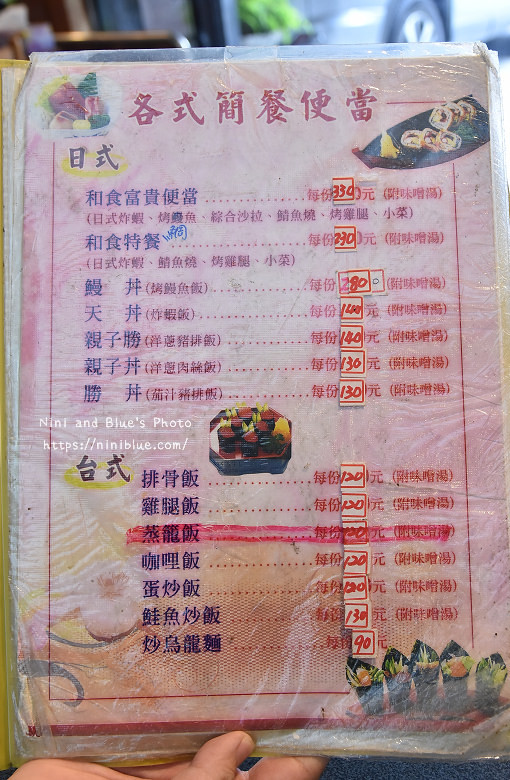 各式簡餐便當
日式
和食富貴便當 .................. 每份330元 (附味噌湯)
(日式炸蝦、烤鰻魚、綜合沙拉、鯖魚燒、烤雞腿、小菜)
和食特餐 .................. 每份230元 (附味噌湯)
(日式炸蝦、鯖魚燒、烤雞腿、小菜)
鰻 丼 (烤鰻魚飯) .................. 每份280。(附味噌湯)
天 丼 (炸蝦飯) .................. 每份140元 (附味噌湯)
親子勝 (洋蔥豬排飯) .................. 每份140元 (附味噌湯)
親子丼 (洋蔥肉絲飯) .................. 每份130元 (附味噌湯)
勝 丼 (茄汁豬排飯) .................. 每份130元 (附味噌湯)
Nini and Blue's Photo
https://niniblue.com/
台式
排骨飯 .................. 每份120元 (附味噌湯)
雞腿飯 .................. 每份120元 (附味噌湯)
蒸籠飯 .................. 每份120元 (附味噌湯)
咖哩飯 .................. 每份120元 (附味噌湯)
蛋炒飯 .................. 每份120元 (附味噌湯)
鮭魚炒飯 .................. 每份130元 (附味噌湯)
炒烏龍麵 每份90元